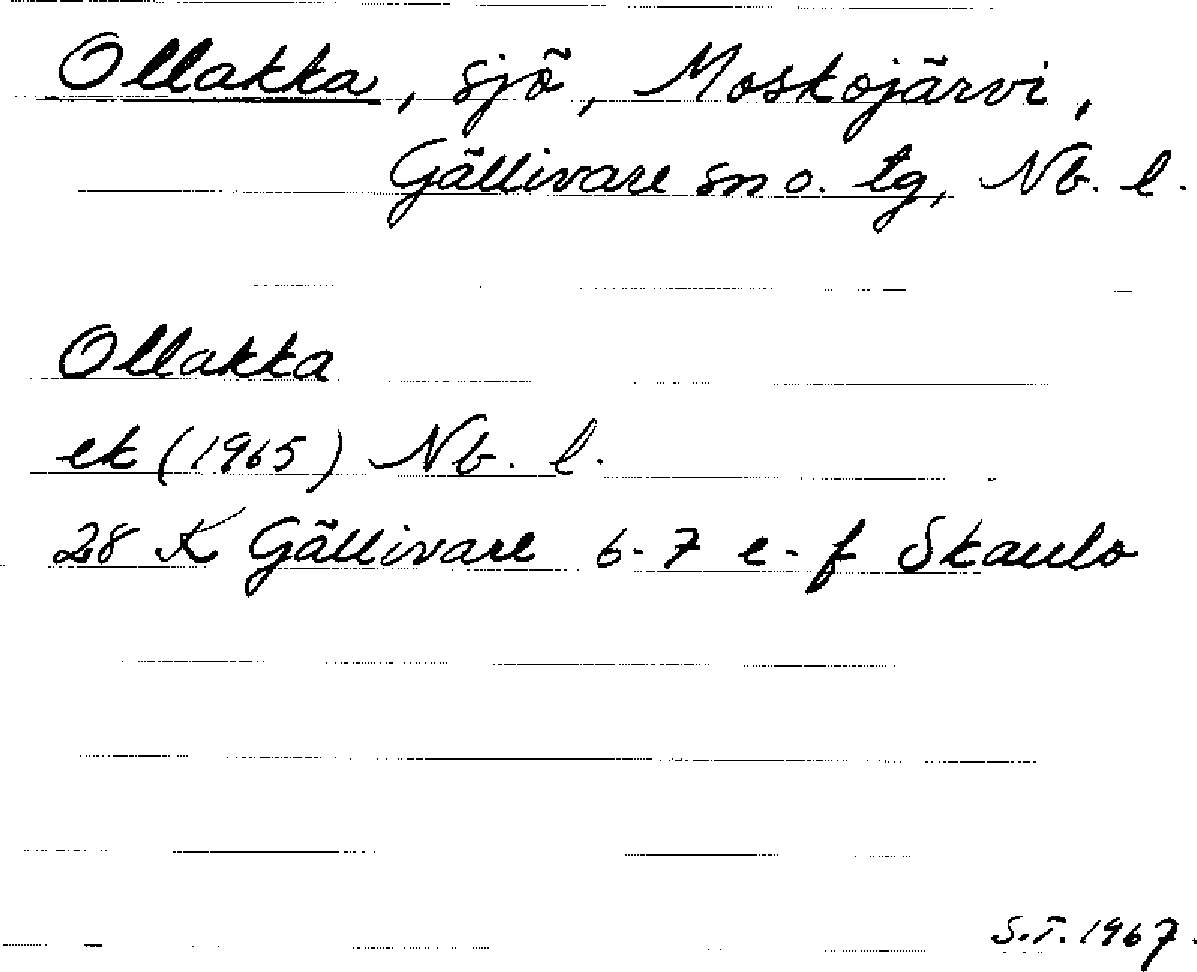 Ollakka, sjö, Moskojärvi,
Gällivare sn o. tg, Nb. l.
Ollakka
ek (1965) Nb. l.
28 K Gällivare 6-7 e-f Skaulo
S.T. 1967.